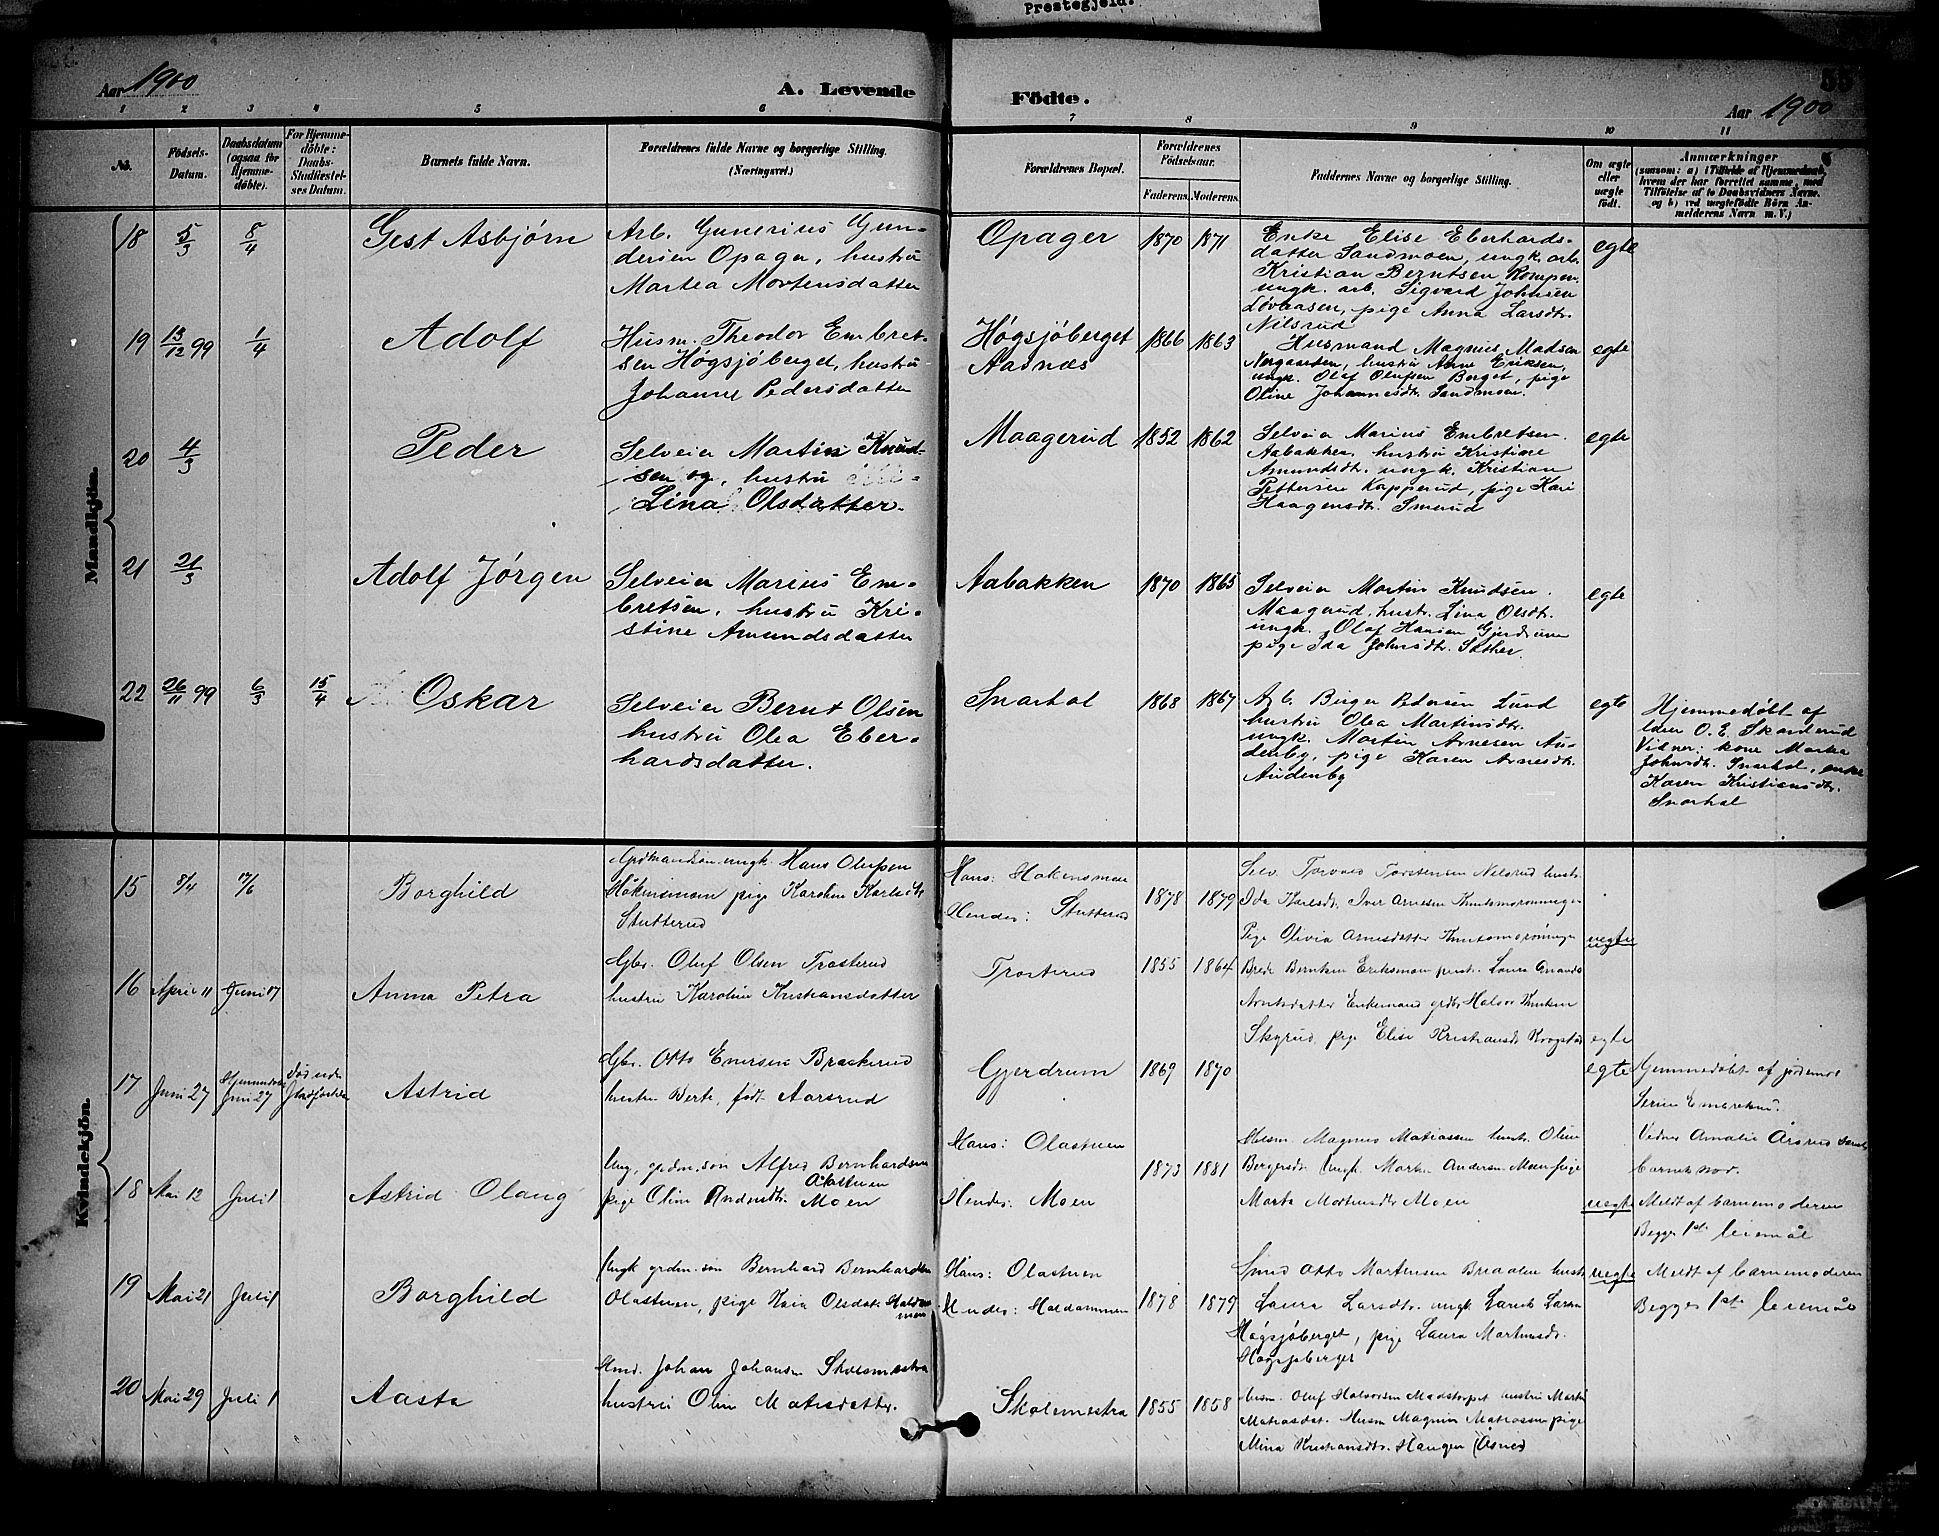 Prestegjeld.
Aar 1900
A. Levende Födte.
55
Aar 1900
1 2 3 4 5 6 7 8 9 10 11
No.
Födsels-Datum.
Daabsdatum (ogsaa for Hjemmedöbte).
For Hjemmedöbte: Daabs-Stadfæstelses Datum.
Barnets fulde Navn.
Forældrenes fulde Navne og borgerlige Stilling.
(Næringsvei.)
Forældrenes Bopæl.
Forældrenes Födselsaar.
Faderens. Moderens.
Faddernes Navne og borgerlige Stilling.
Om ægte eller uægte födt.
Anmærkninger
(saasom: a) i Tilfælde af Hjemmedaab, hvem der har forrettet samme, med Tilföielse af to Daabsvidners Navne, og b) ved uægtefödte Börn Anmelderens Navn m. V.)
Mandkjön.
18 5/3 8/4 Gest Asbjørn
Arb. Gunerius Gun-
dersen Opager, hustru
Martea Mortensdatter
Opager 1870 1871
Enke Elise Eberhards-
datter Sandmoen, ungk. arb.
Kristian Berntsen Rompen,
ungk. arb. Sigvard Johnsen
Løvaasen, pige Anna Larsdtr.
Nilsrud
egte
19 13/12 99 1/4 Adolf
Husm. Theodor Embret-
sen Høgsjøberget, hustru
Johanne Pedersdatter
Høgsjøberget
Aasnæs
1866 1863
Husmand Magnus Madsen
hustru Anne Eriksen,
ungk. Olaf Olufsen Berget, pige
Oline Johannesdtr. Sandmoen.
egte
20 4/3 Peder
Selveier Martin Knud-
sen og, hustru
Lina Olsdatter.
Maagerud 1852 1862
Selveier Marius Embretsen
Aabakken, hustru Kristine
Amundsdtr. ungk. Kristian
Pettersen Kapperud, pige Kari
Haagensdtr. Smerud
egte
21 21/3 Adolf Jørgen
Selveier Marius Em-
bretsen, hustru Kri-
stine Amundsdatter
Aabakken 1870 1865
Selveier Martin Knudsen
Maagerud, hustr. Lina Olsdtr.
ungk. Olaf Hansen Gjerdrum
pige Ida Johnsdtr. Sæther.
egte
22 26/11 99 6/3 15/4 Oskar
Selveier Bernt Olsen
hustru Olea Eber-
hardsdatter.
Snarhol 1868 1867
Arb. Birger Pedersen Lund
hustru Olea Martinsdtr.
ungk. Martin Arnesen Au-
denby, pige Karen Arnesdtr.
Audenby
egte
Hjemmedøbt af
lærer O. E. Skarderud
Vidner: kone Marte
Johnsdtr. Snarhol, enke
Karen Kristiansdtr.
Snarhol
Kvindekjön.
15 8/4 17/6 Borghild
ungk. Hans Olufsen
Håkensmoen pige Karoline Karlsdtr
Stutterud
Hans: Hakensmoen
Hendes: Stutterud
1878 1879
Selv. Torvald Torstensen Nilsrud hustr.
Ida Karlsdt. Iver Arnesen Knutsmorønningen
Pige Olivia Arnesdatter Knutsmorønningen
uegte
16 April 11 Juni 17 Anna Petra
Gbr. Oluf Olsen Trosterud
hustru Karoline Kristiansdatter
Trosterud 1855 1864
Brede Berntsen Eriksmoen Laura
Arntsdatter Enkemand grdbr Halvor Knutsen
Skyrud, pige Elise Kristiansdt Krogstad
egte
17 Juni 27 Hjemmedøbt Juni 27 Død uden Stadfæstelse Astrid
Gbr. Otto Enersen Braskerud
hustru Berte, født Aarsrud
Gjerdrum 1869 1870
egte
Hjemmedøbt af jordmor
Serine Embretsen.
Vidner Amalie Årsrud samt
barnets mor.
18 Mai 12 Juli 1 Astrid Olaug
Ung. grdm. søn Alfred Bernhardsen
Olastuen
pige Oline Andersdtr. Moen
Hans: Olastuen
Hendes: Moen
1873 1881
Husm. Magnus Matiassen hustr. Oline
Bergersdtr Ungk. Martin Andersen Moen pige
Marta Mortensdtr Moen
uegte
Meldt af barnemoderen
Begges 1ste leiemål
19 Mai 21 Juli 1 Borghild
Ungk grdm. søn Bernhard Bernhardsen
Olastuen, pige Kaia Olsdat. Holdam-
moen
Hans: Olastuen
Hendes: Holdammoen
1878 1879
Smed Otto Mortensen Braaten hustr.
Laura Larsdtr. ungk Larsen
Høgsjøberget, pige Laura Martinsdt.
Høgsjøberget
uegte
Meldt af barnemoderen
Begges 1ste leiemål
20 Mai 29 Juli 1 Aasta
Smd. Johan Johansen Skolemestra
hustru Oline Matisdatter.
Skolemestra 1855 1858
Husm. Oluf Halvorsen Madstorpet hustru Marte
Matiasdat. Husm Magnus Matiassen pige
Mina Kristiansdtr. Haugen (Åsnes)